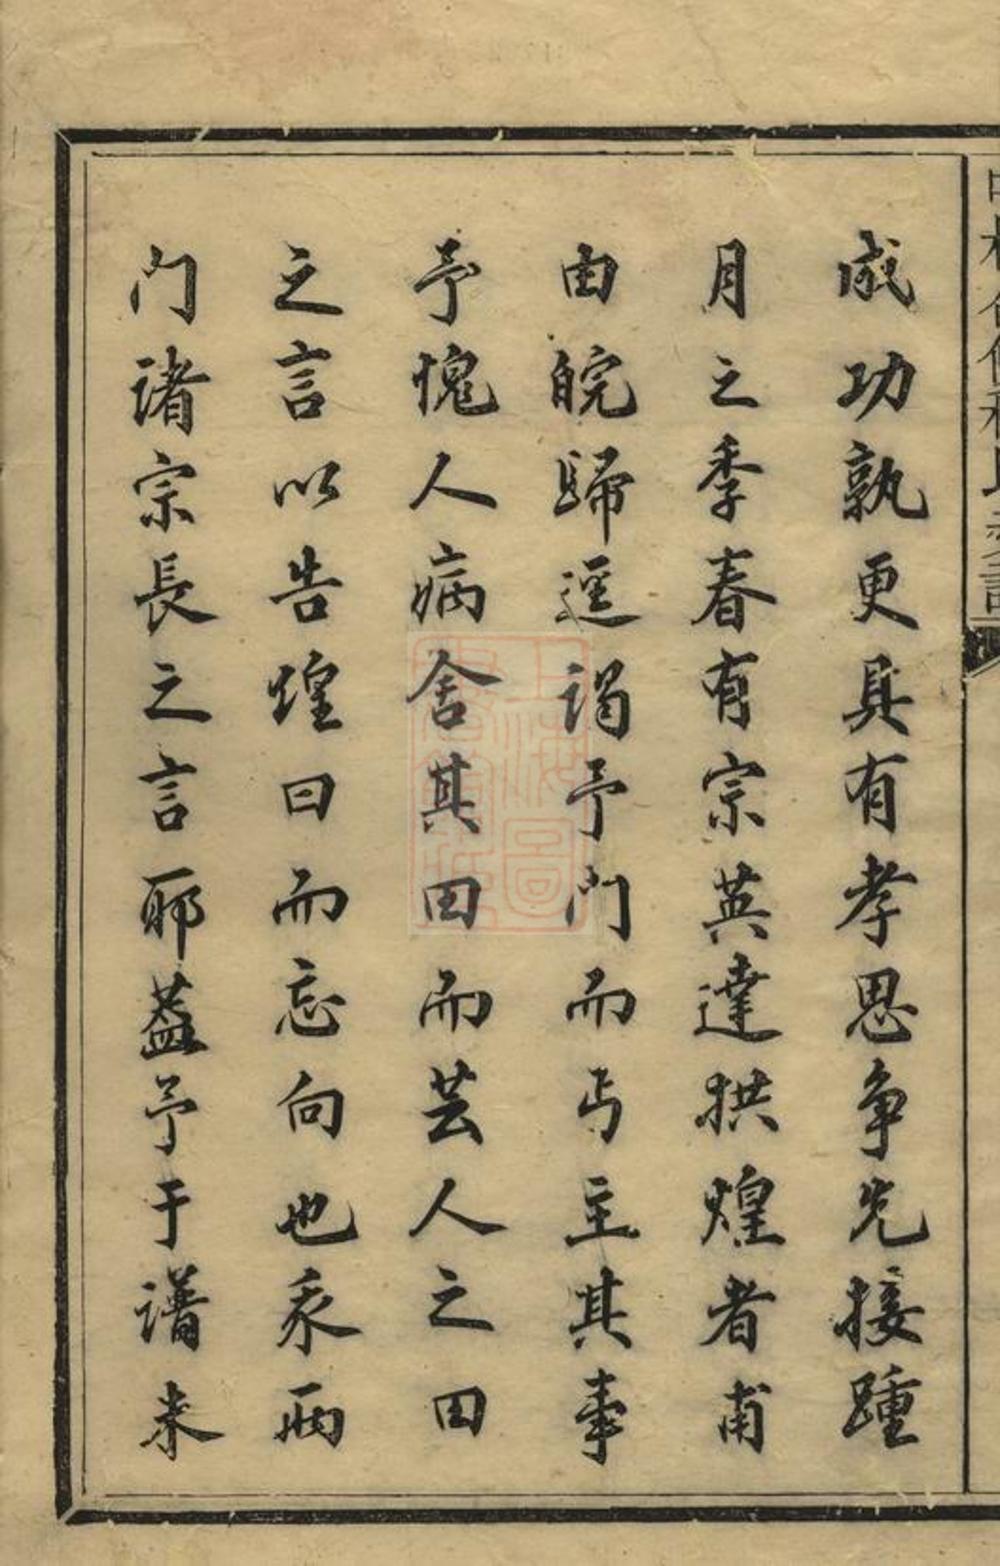 成功孰更具有孝思争先接踵
月之季春有宗英達拱煌者甫
由皖歸逕謁予門而丐主其事
予愧人病舍其田而芸人之田
之言以告煌曰而忘向也承兩
門諸宗長之言耶蓋予于譜未
上海圖
書館藏